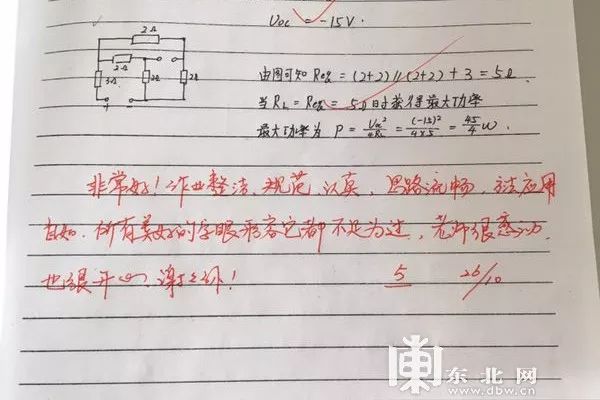 Uoc = -15V.
2Ω
2Ω
3Ω
2Ω
2Ω
由图可知 Req = (2+2)//(2+2) + 3 = 5Ω
当 RL = Req = 5Ω时获得最大功率
最大功率为 P = Uoc²/4RL = (-15)²/4×5 = 45/4 W.
非常好！作业整洁、规范、认真，思路流畅，方法应用
自如，所有美好的字眼形容它都不足为过，老师很感动，
也很开心，谢
5 26/10
东北网
www.dbw.cn